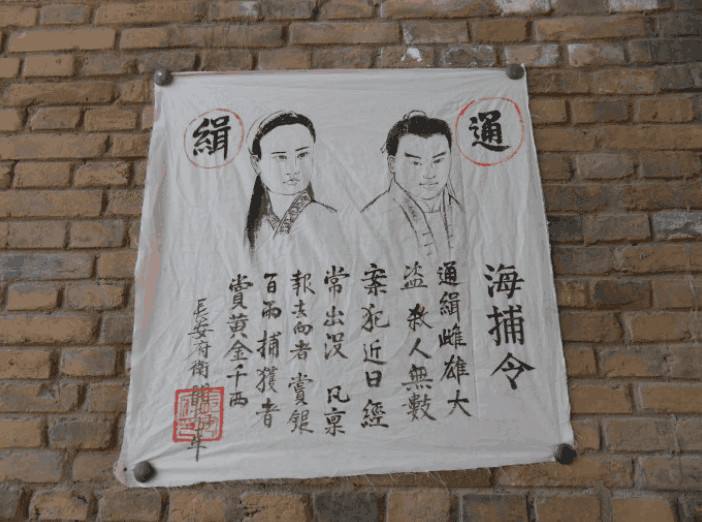 通緝
海捕令
通緝雌雄大
盗 殺人無數
案犯近日經
常出没 凡稟
報去向者 賞銀
百兩捕獲者
賞黄金千两
長安府衙
年